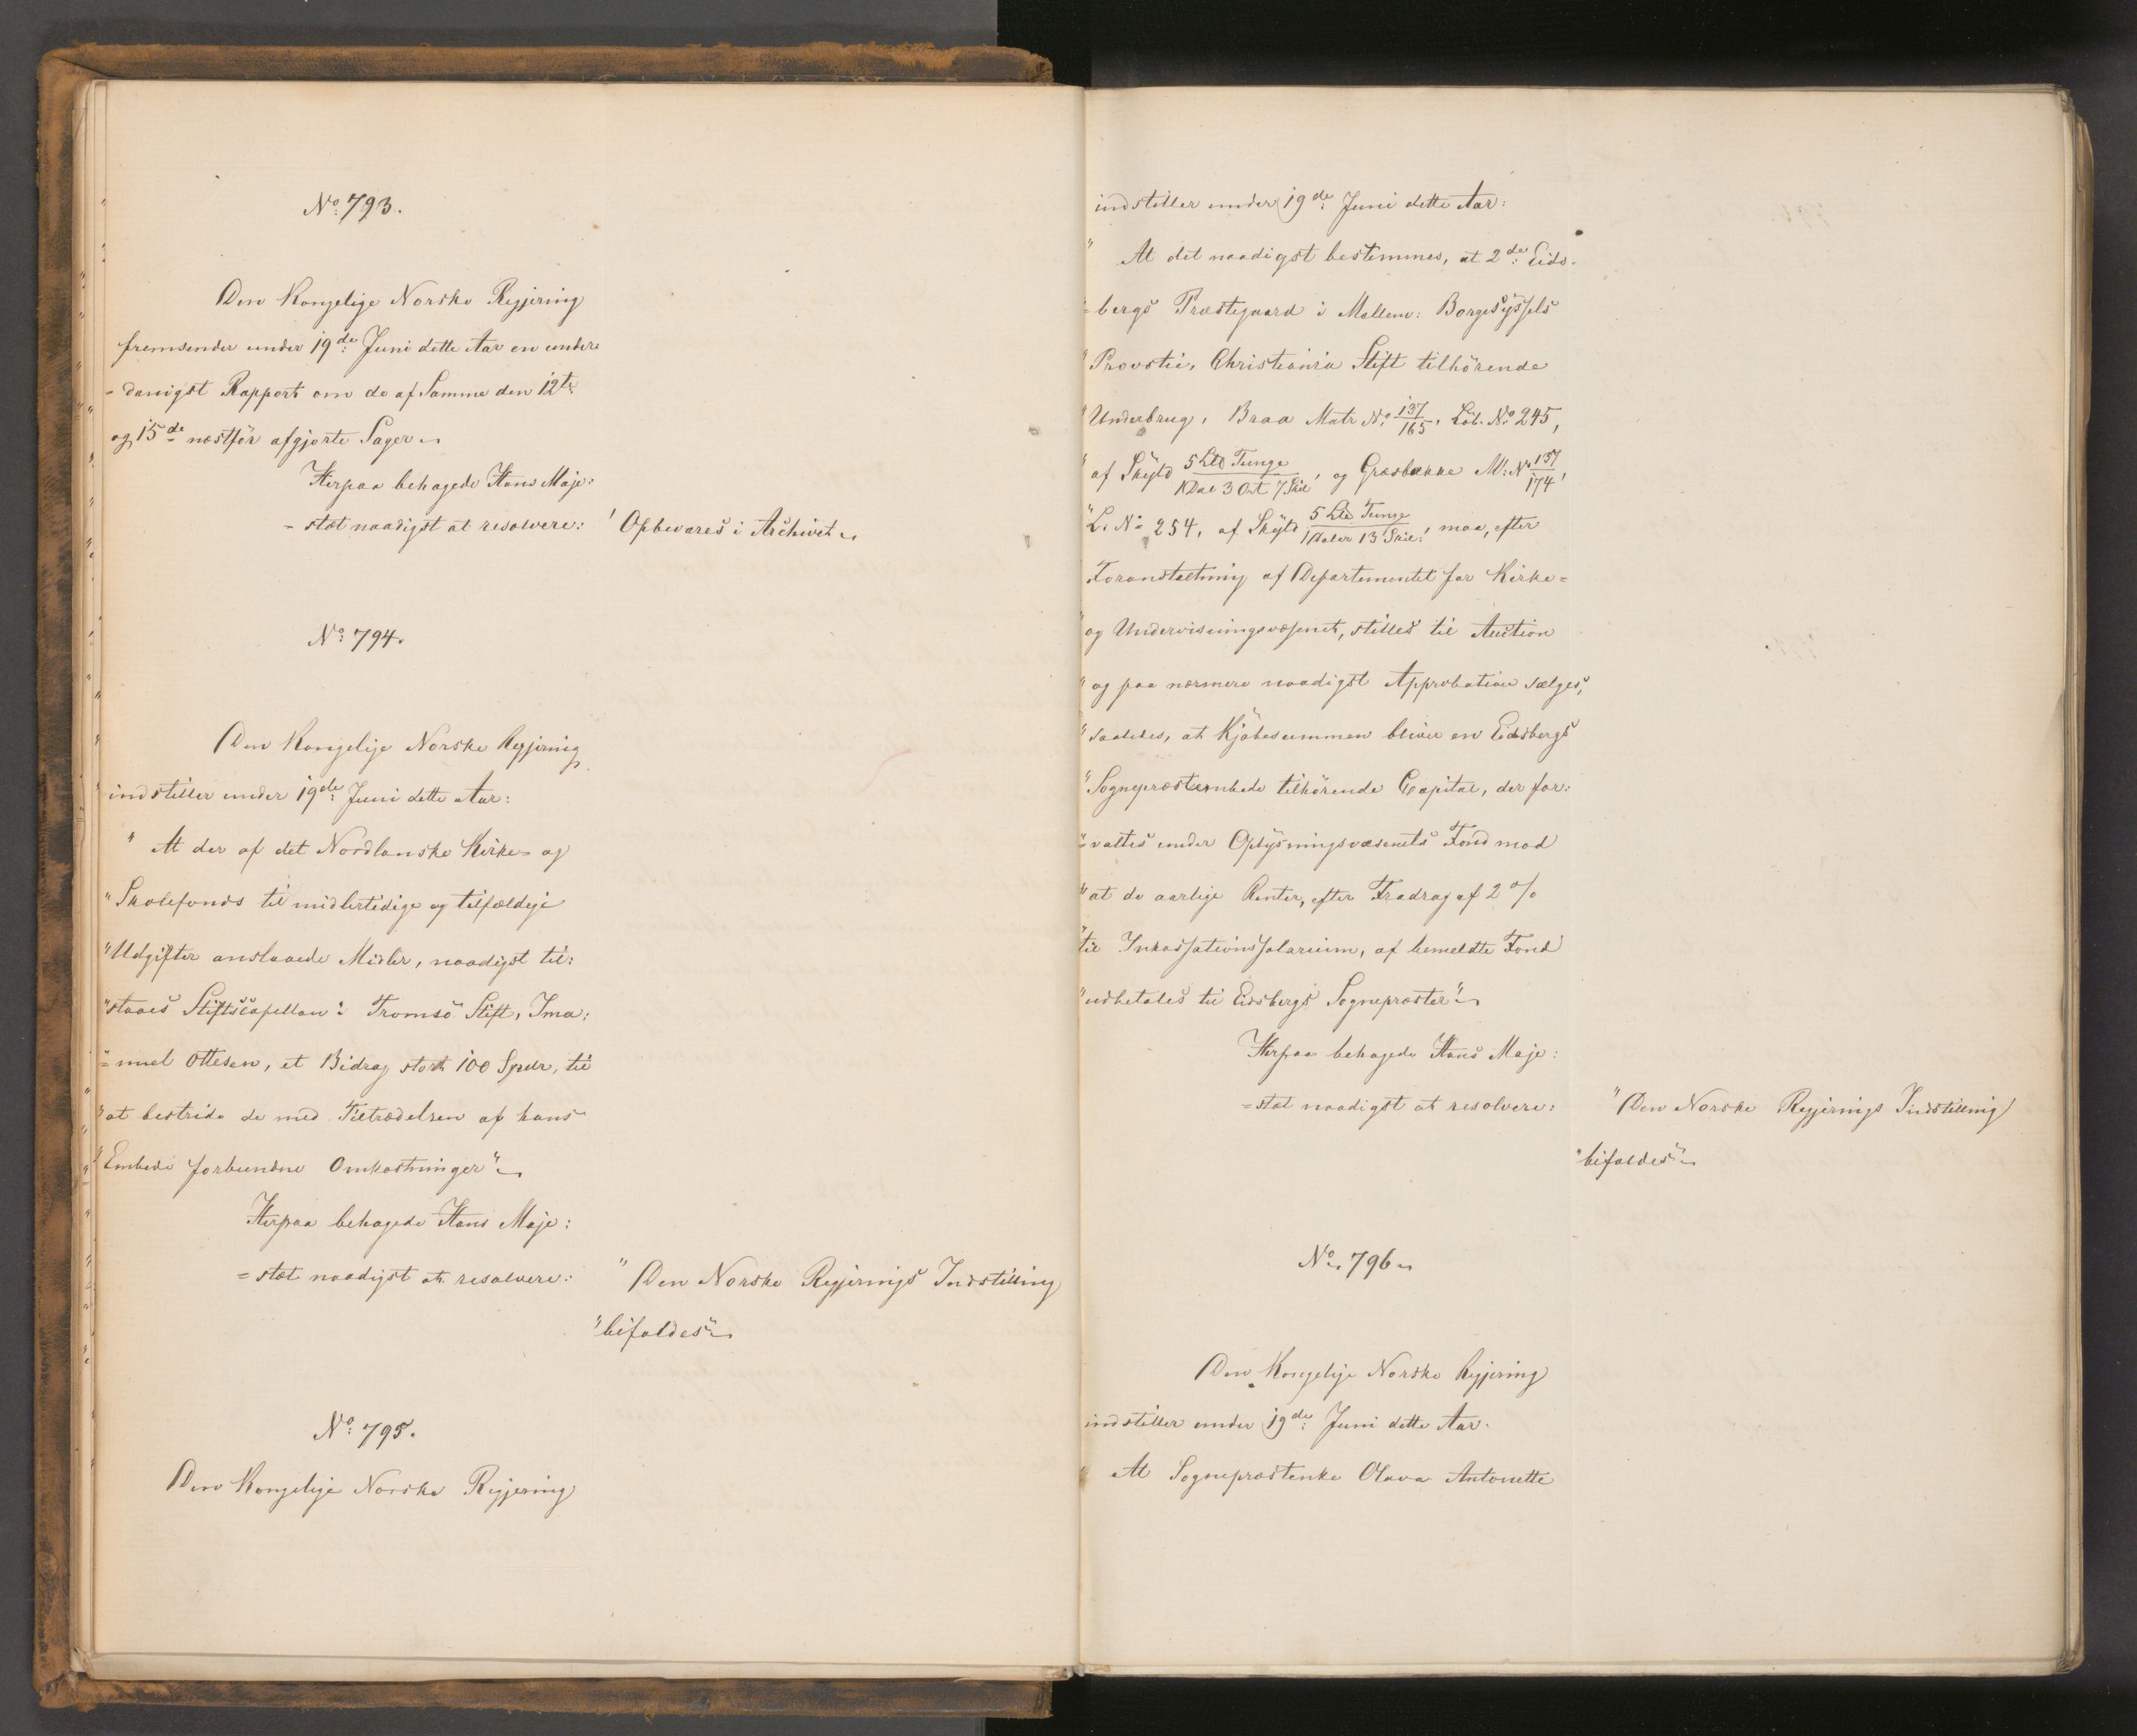 No: 793.
Den Kongelige Norske Regjering
fremsender under 19de: Juni dette Aar en under¬
=danigst Rapport om de af Samme den 12te
og 15de næstfør afgjorte Sager.
Herpaa behagede Hans Maje:
=stæt naadigst at resolvere: "Opbevares i Archivet
No: 794.
Den Kongelige Norske Regjering
indstiller under 19de: Juni dette Aar:
" At der af det Nordlanske Kirke- og
"Skolefonds til midlertidige og tilfældige
"Udgifter anslaaede Midler, naadigst til:
"staaes Stiftscapellan i Tromsö Stift, Ima:
"=nuel Ottesen, et Bidrag stort 100 Spdr, til
"at bestride de med Tiltrædelsen af hans
"Embede forbundne Omkostninger"
Herpaa behagede Hans Maje:
=stæt naadigst at resolvere: "Den Norske Regjerings Indstilling
"bifaldes"
No: 795.
Den Kongelige Norske Regjering
indstiller under 19de: Juni dette Aar:
" At det naadigst bestemmes, at 2de: Eids-
"=bergs Præstegaard i Mellem: Borgesyssels
"Provsti, Christiania Stift tilhörende
"Underbrug, Braa Matr No: 137/165, Löb. No 245,
"af Skyld 5 Lbd Tunge / 1 Dal 3 Ort 7 Skil, og Græsbakke M: No 137/174,
"L. No 254, af Skyld 5 Lbd Tunge / 1 Daler 13 Skil:, maa, efter
Foranstaltning af Departementet for Kirke=
"og Undervisningsvæsenet, stilles til Auction
"og paa nærmere naadigst Approbation sælges,
"saaledes, at Kjöbesummen bliver en Eidsbergs
"Sognepræsteembede tilhörende Capital, der for:
"=valtes under Oplysningsvæsenets Fond mod
"at de aarlige Renter, efter Fradrag af 2 %
"til Inkassationssalarium, af bemeldte Fond
"udbetales til Eidsbergs Sognepræster"
Herpaa behagede Hans Maje:
=stæt naadigst at resolvere: "Den Norske Regjerings Indstilling
"bifaldes"
No. 796
Den Kongelige Norske Regjering
indstiller under 19de: Juni dette Aar.
" At Sognepræstenke Olava Antonette